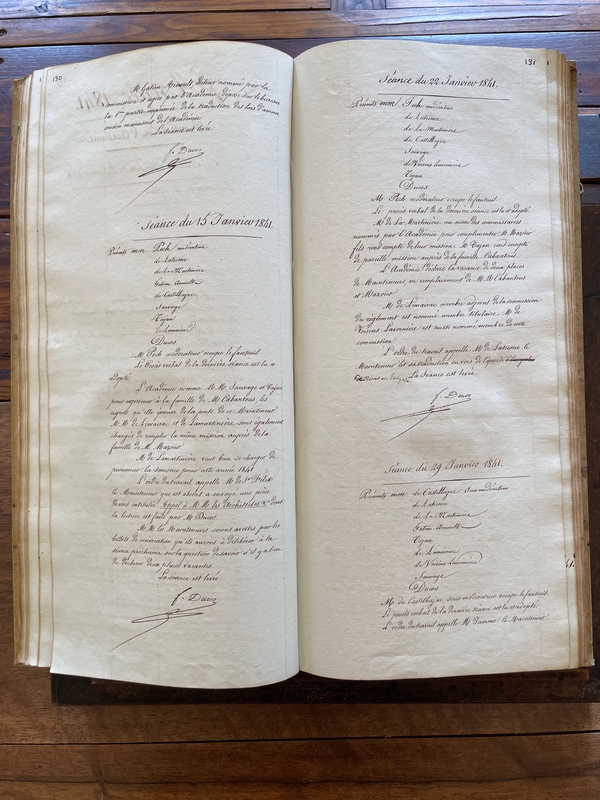 130
M. Gatien Arnoult, éditeur nommé par la
Commission et agréé par l'Académie, dépose sur le bureau
la 1ere partie imprimée de la traduction des lois d'amour
ancien manuscrit de l'Académie
La séance est levée
f. Ducos
Séance du 15 Janvier 1841.
Présents mm. Pech modérateur
de Latresne
de la Martinière
Gatien Arnoult
de Castelbajac
Sauvage
Cajan
de Limairac
Ducos
M. Pech modérateur occupe le fauteuil.
Le Procès verbal de la dernière séance est lu et
adopté
L'Académie nomme M.M. Sauvage et Cajan
pour exprimer à la famille de M. Cabantous, les
regrets qu'elle éprouve de la perte de ce Mainteneur
M.M. de Limairac et de Lamartinière, sont également
chargés de remplir la même mission auprès de la
famille de M.
M. de Lamartinière veut bien se charger de
prononcer la semonce pour cette année 1841
L'ordre du travail appelle M. de St Félix
le Mainteneur qui est absent a envoyé une pièce
de vers intitulée Appel à M.M. les dont
la lecture est faite par M. Ducos.
M.M. les Mainteneurs seront avertis par les
billets de convocation qu'ils auront à délibérer à la
séance prochaine sur la question de savoir s'il y a lieu
de déclarer deux places vacantes.
La séance est levée
f. Ducos
131
Séance du 22 Janvier 1841.
Présents mm. Pech modérateur
de Latresne
de la Martinière
de Castelbajac
Sauvage
de Voisins Lavernière
Cajan
Ducos
M. Pech modérateur occupe le fauteuil.
Le procès verbal de la dernière séance est lu et adopté
M. de La Martinière au nom des commissaires
nommés par l'Académie pour complimenter M.
fils rend compte de leur mission. M. Cajan rend compte
de pareille mission auprès de la famille Cabantous.
L'Académie déclare la vacance de deux places
de Mainteneurs en remplacement de M.M. Cabantous
et
M. de Limairac membre adjoint de la commission
du règlement est nommé membre titulaire. M. de
Voisins Lavernière est aussi nommé membre de cette
commission.
L'ordre du travail appelle M. de Latresne. Le
Mainteneur lit sa traduction en vers de
La Séance est levée
f. Ducos
Séance du 29 Janvier 1841.
Présents mm. de Castelbajac Sous modérateur
de Latresne
de la Martinière
Gatien Arnoult
Cajan
de Limairac
de Voisins Lavernière
Sauvage
Ducos
M. de Castelbajac, sous modérateur occupe le fauteuil.
Le procès verbal de la dernière séance est lu et adopté
L'ordre du travail appelle M. Ce Mainteneur